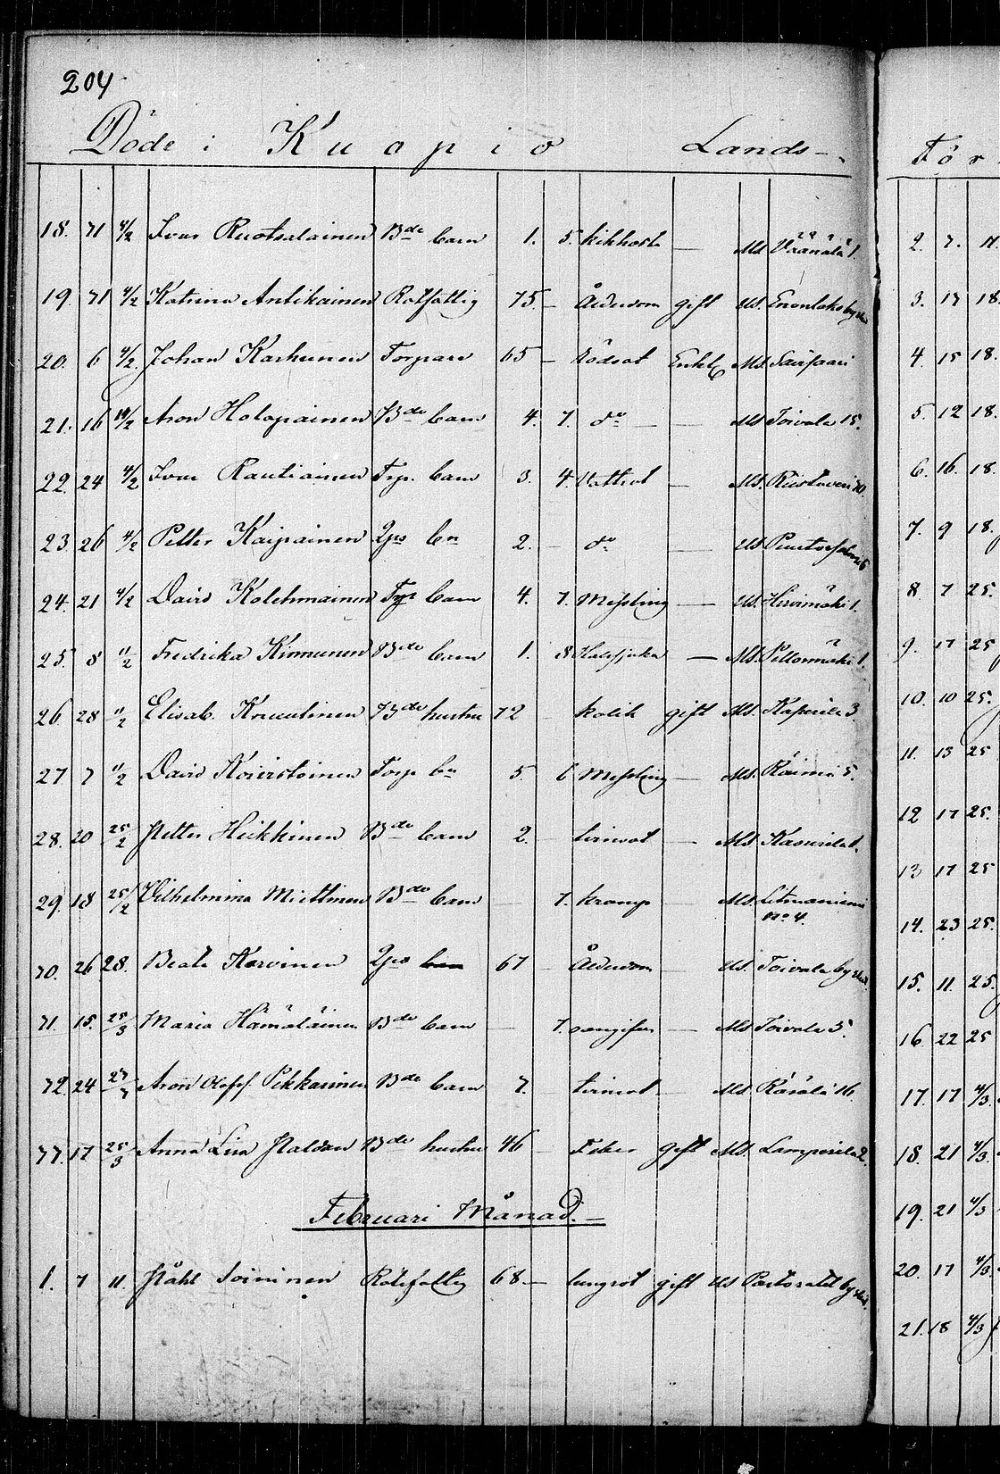 204
Döde i Kuopio Lands-
18. 71 4/2 Ivar Ruotsalainen Bde barn 1. 5. kikhosta — Md. Väänälä 1.
19 71 4/2 Katrina Antikainen Rotfattig 75. — Ålderdom gift Ud. Enonlaks by
20. 6 4/2 Johan Karhunen Torpare 65 — Rödsot Enkl. Md. Saarisaari
21. 16 Aron Holopainen Bde barn 4. 7. do — — Md Toivala 15.
22. 24 4/2 Ivar Rautiainen Trp. barn 3. 4. Vattsot — Md.
23. 26 4/2 Petter Kaipainen Lps bn 2. — do —
24. 21 4/2 David Kolehmainen Trp barn 4. 7. Messling — Ud. Hirvimäki 1.
25. 8 11/2 Fredrika Kinnunen Bde barn 1. 8 — Md. Peltonmäki 1.
26. 28 11/2 Elisab. Bde hustru 72 kolik gift Md. Kasurila 3
27 7 11/2 David Koivistoinen Torp bn 5 6 Messling — Md. Räimä 5.
28. 20 25/2 Petter Heikkinen Bde barn 2. tvinsot — Md. Kasurila 1.
29. 18 25/2 Vilhelmina Miettinen Bde barn — 7. kramp — Md. No 4.
30. 26 28. Beata Korvinen Lps 67 — Ålderdom — Ud. Toivala by
31. 15. 25/3 Maria Hämäläinen Bde barn — 7. — Md Toivala 5.
32. 24 Aron Olof Pekkarinen Bde barn 7. tvinsot — Md. Räsälä 16.
33. 17 25/3 Anna Lisa Bde hustru 46 — Feber gift Md.
Februari Månad. —
1. 7 11. Påhl Soininen Rotefattig 68 — lungsot gift Ud
För
2. 7. 11.
3. 17 18.
4. 15 18.
5. 12 18.
6. 16. 18.
7. 9 18.
8. 7 25.
9. 17 25
10. 10 25.
11. 13 25
12 17 25.
13 17 25
14. 23 25.
15. 11. 25.
16 22 25
17. 17 4/3.
18. 21 4/3
19. 21 4/3
20. 17 4/3.
21. 18 4/3